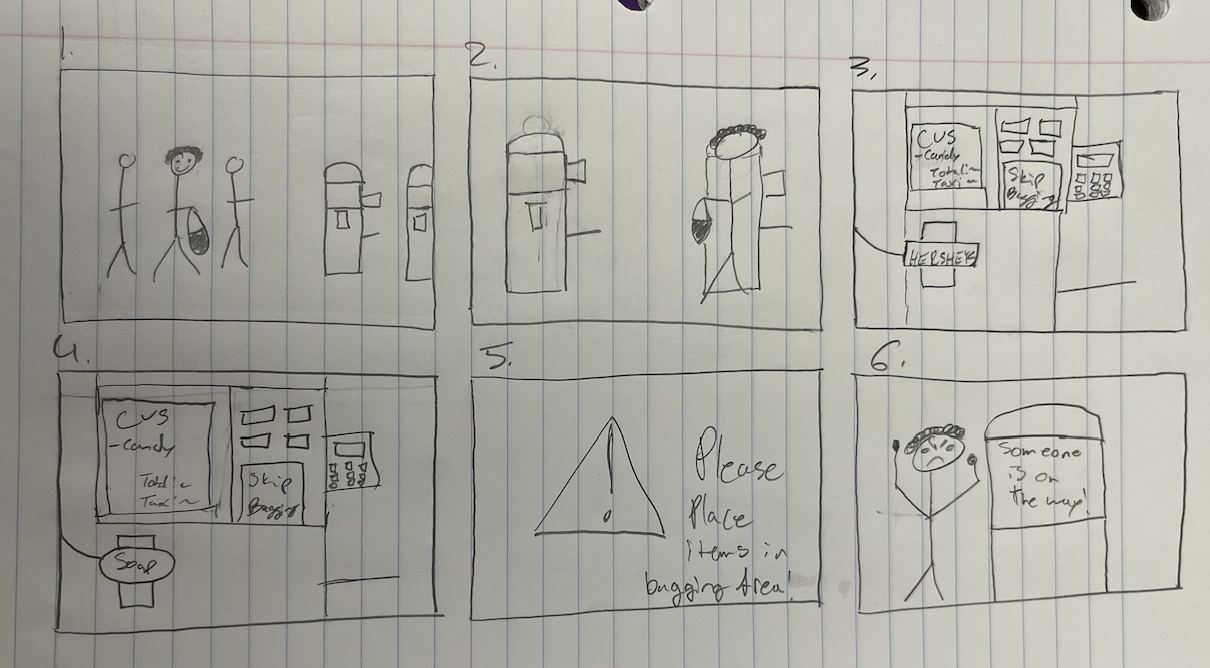 1.
2.
3.
CVS
-Candy
Total:~
Tax:~
Skip
Bagging
HERSHEYS
4.
CVS
-Candy
Total:~
Tax:~
Skip
Bagging
Soap
5.
Please
Place
items in
bagging Area!
6.
Someone
is on
the way!